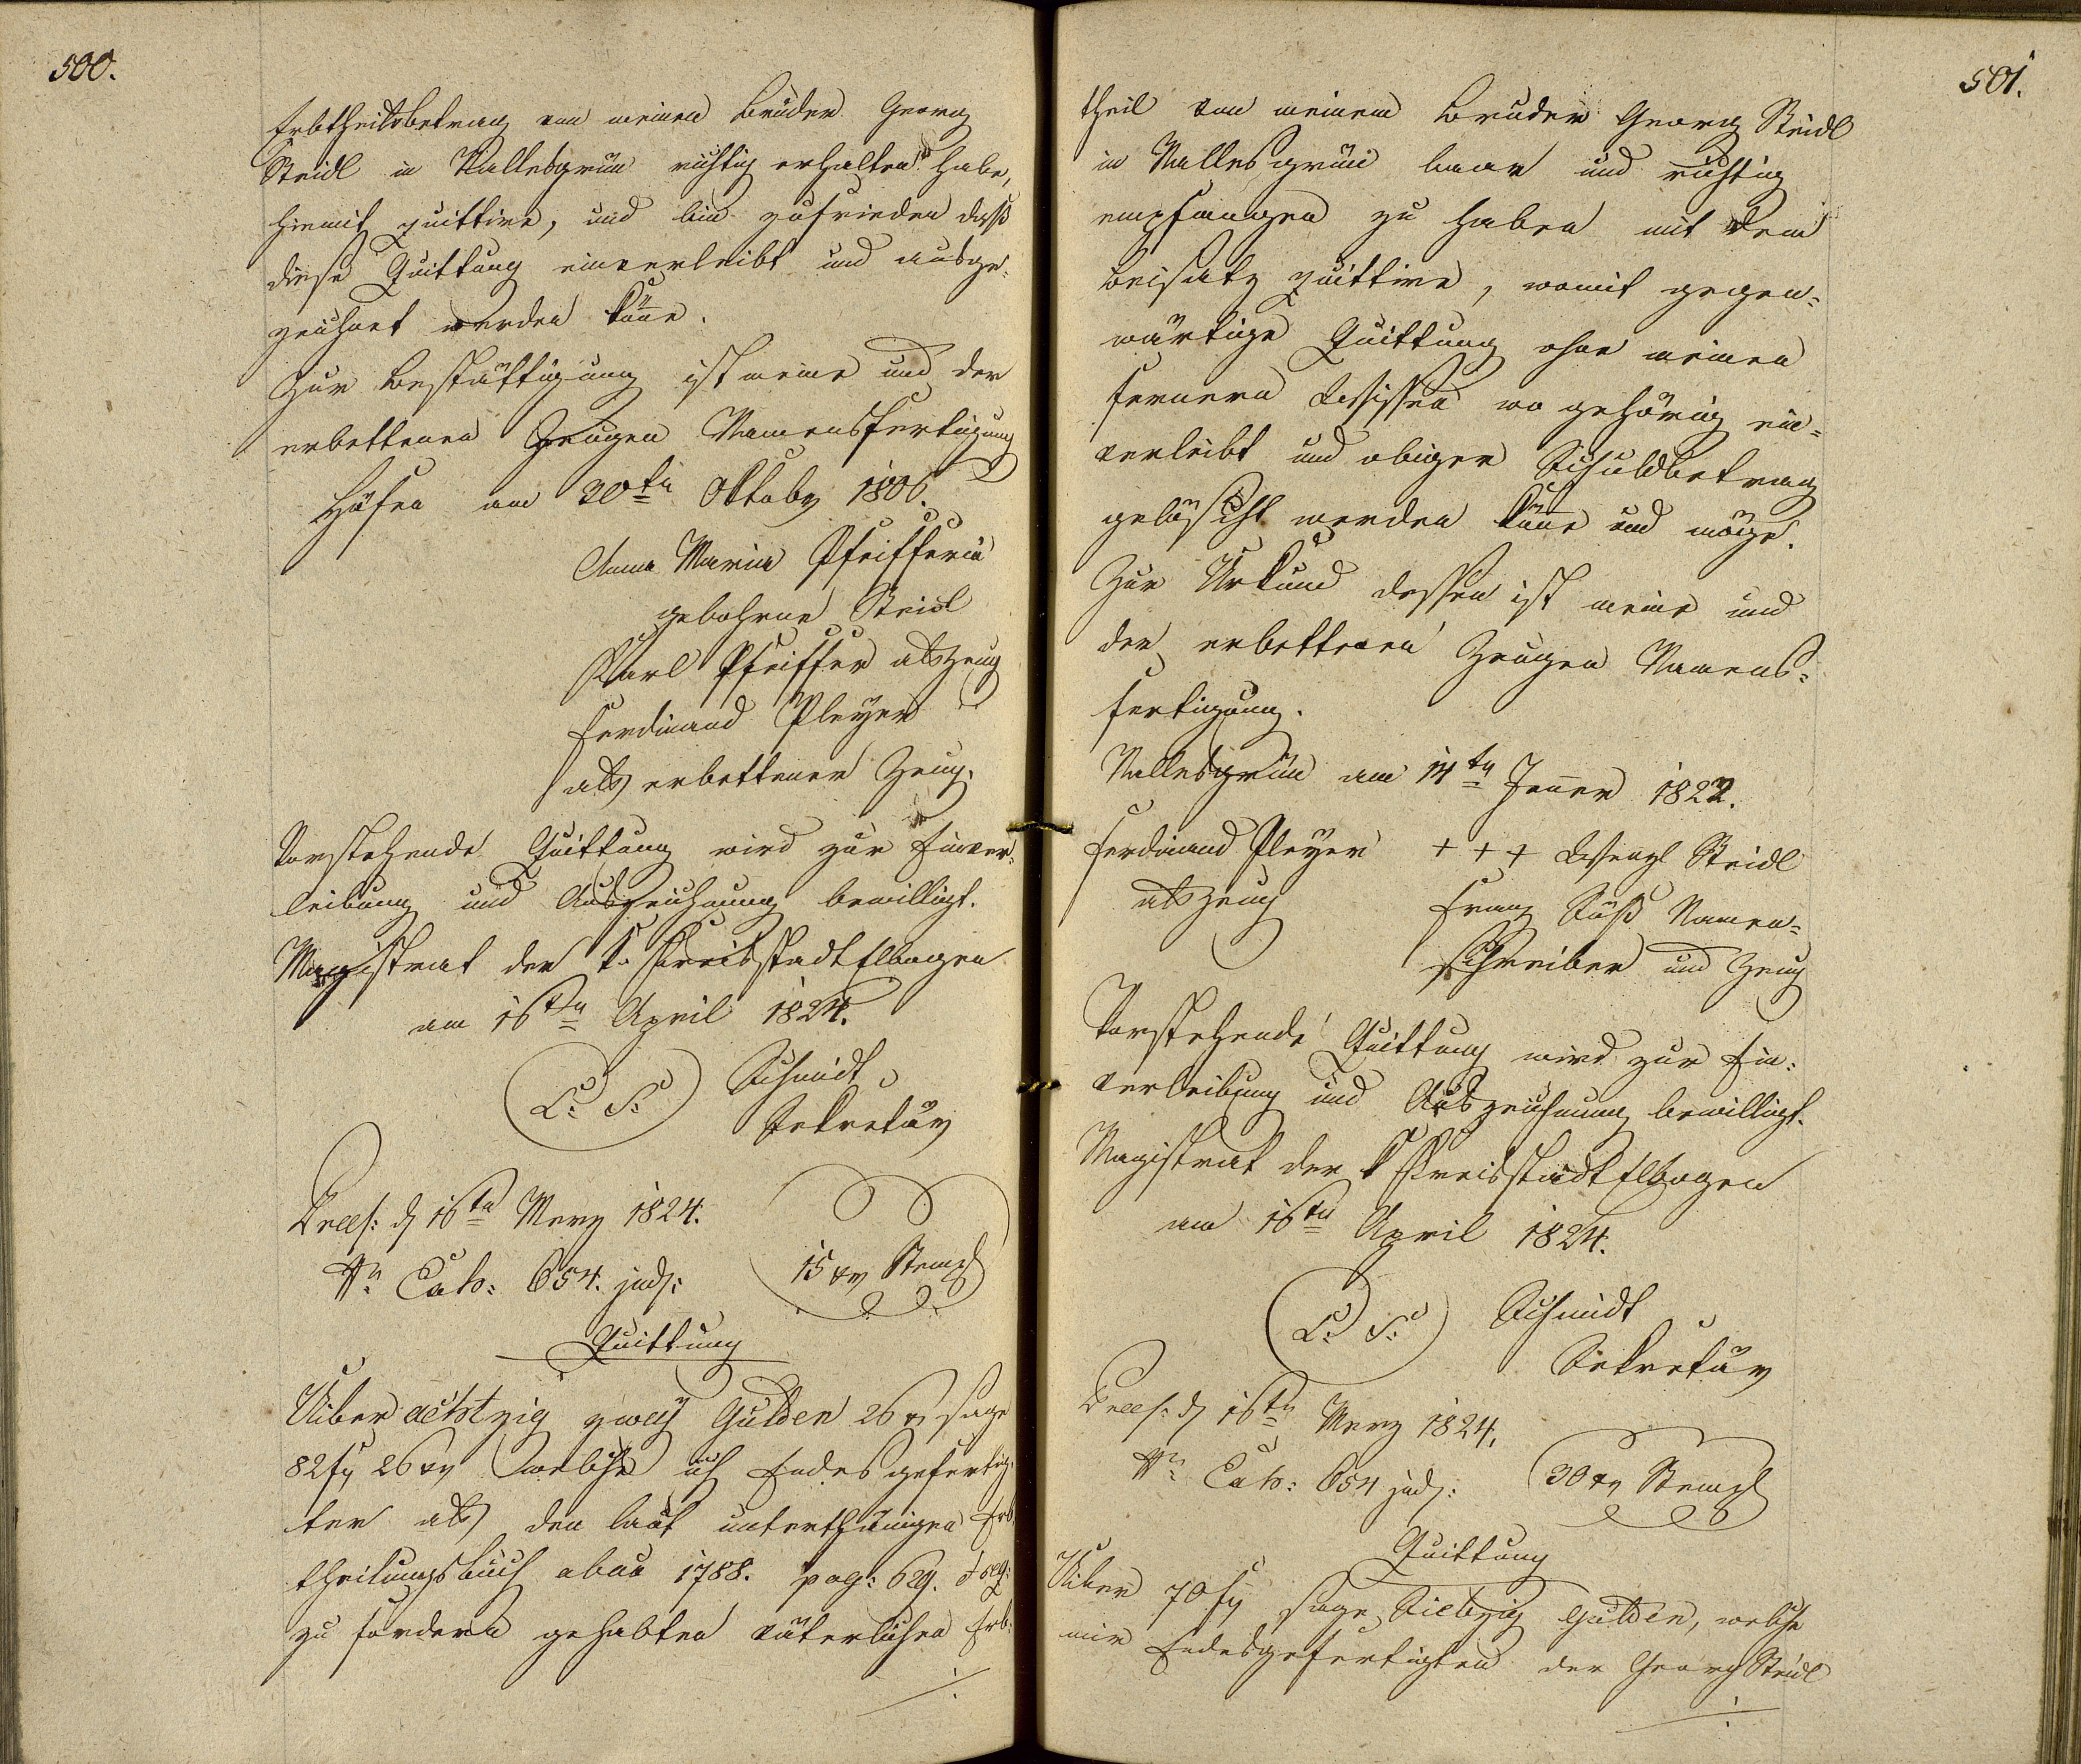 500.
Erbtheilsbetrag von meinen Bruder Georg
Steidl in Nallesgrün richtig erhalten habe,
hiemit quittire, und bin zufrieden dass
diese Quittung einverleibt und ausge-
zeichnet werden könne.
Zur Bestättigung ist meine und der
erbettenen Zeugen Namensfertigung
am 30ten Oktober 1806.
Anna Maria Pfeifferin
gebohrne Steidl
Karl Pfeiffer als Zeug
Ferdinand Pleyer
als erbettener Zeug.
Vorstehende Quittung wird zur Einver-
leibung und Auszeichnung bewilligt.
Magistrat der k. Kreisstadt Elbogen
am 16ten April 1824.
L. S. Schmidt
Sekretär
Præs: d 16ten Merz 1824.
Nro Exh: 654. jud:
15 xr Stempl
Quittung
Uiber achtzig zwey Gulden 26 xr sage
82 fl 26 xr welche ich Endesgefertig-
ter als den laut unterthänigen Erb-
theilungsbuch abau 1788. pag: 629. et seq:
zu fordern gehabten väterlichen Erb-
./.
501.
theil von meinem Bruder Georg Steidl
in Nallesgrün baar und richtig
empfangen zu haben mit dem
Beisatz quittire, womit gegen-
wärtige Quittung ohne meinen
fernern Wissen wo gehörig ein-
verleibt und obiger Schuldbetrag
gelöscht werden könne und möge.
Zur Urkund dessen ist meine und
der erbettenen Zeugen Namens-
fertigung.
Nallesgrün am 14ten Jenner 1822.
Ferdinand Pleyer + + + Wenzl Steidl
als Zeug Franz Süß Namen-
schreiber und Zeug
Vorstehende Quittung wird zur Ein-
verleibung und Auszeichnung bewilligt.
Magistrat der k Kreisstadt Elbogen
am 16ten April 1824.
L. S. Schmidt
Sekretär
Præs: d 16ten Merz 1824.
Nro Exh: 654 jud:
30 xr Stempl
Quittung
Uiber 70 fl sage Siebzig Gulden, welche
mir Endesgefertigten der Georg Steidl
./.